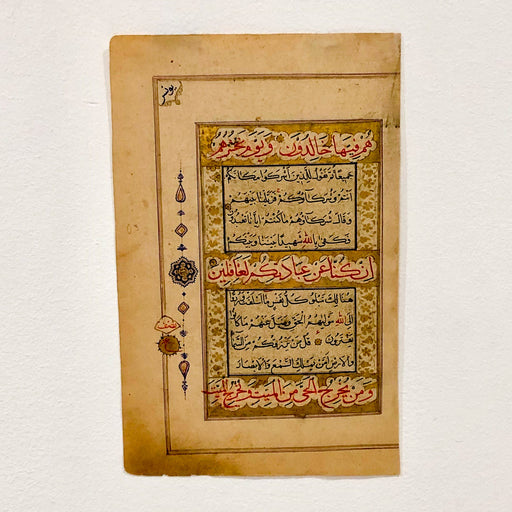 يونس
هُمْ فِيهَا خَالِدُونَ وَيَوْمَ نَحْشُرُهُمْ
جَمِيعًا ثُمَّ نَقُولُ لِلَّذِينَ أَشْرَكُوا مَكَانَكُمْ
أَنْتُمْ وَشُرَكَاؤُكُمْ فَزَيَّلْنَا بَيْنَهُمْ
وَقَالَ شُرَكَاؤُهُمْ مَا كُنْتُمْ إِيَّانَا تَعْبُدُونَ
فَكَفَى بِاللَّهِ شَهِيدًا بَيْنَنَا وَبَيْنَكُمْ
إِنْ كُنَّا عَنْ عِبَادَتِكُمْ لَغَافِلِينَ
هُنَالِكَ تَبْلُو كُلُّ نَفْسٍ مَا أَسْلَفَتْ وَرُدُّوا
إِلَى اللَّهِ مَوْلَاهُمُ الْحَقِّ وَضَلَّ عَنْهُمْ مَا كَانُوا
يَفْتَرُونَ قُلْ مَنْ يَرْزُقُكُمْ مِنَ السَّمَاءِ
وَالْأَرْضِ أَمَّنْ يَمْلِكُ السَّمْعَ وَالْأَبْصَارَ
وَمَنْ يُخْرِجُ الْحَيَّ مِنَ الْمَيِّتِ وَيُخْرِجُ الْمَيِّتَ